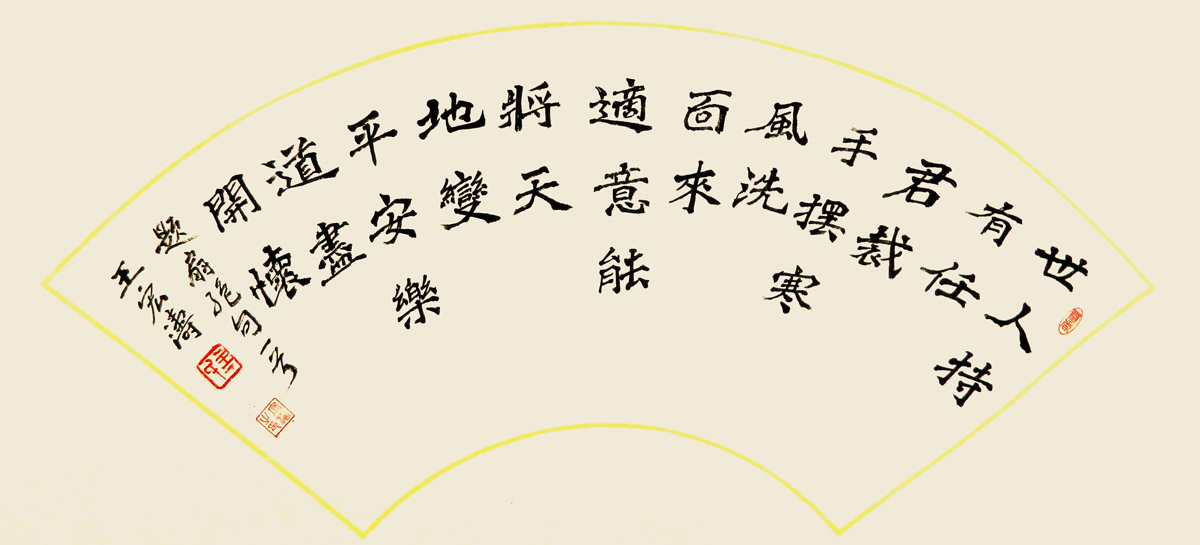 世人持
有任
君裁
手摆寒
風洗
面來
適意能
將天
地變
平安樂
道盡
開懷
题扇绝句一首
王宏濤